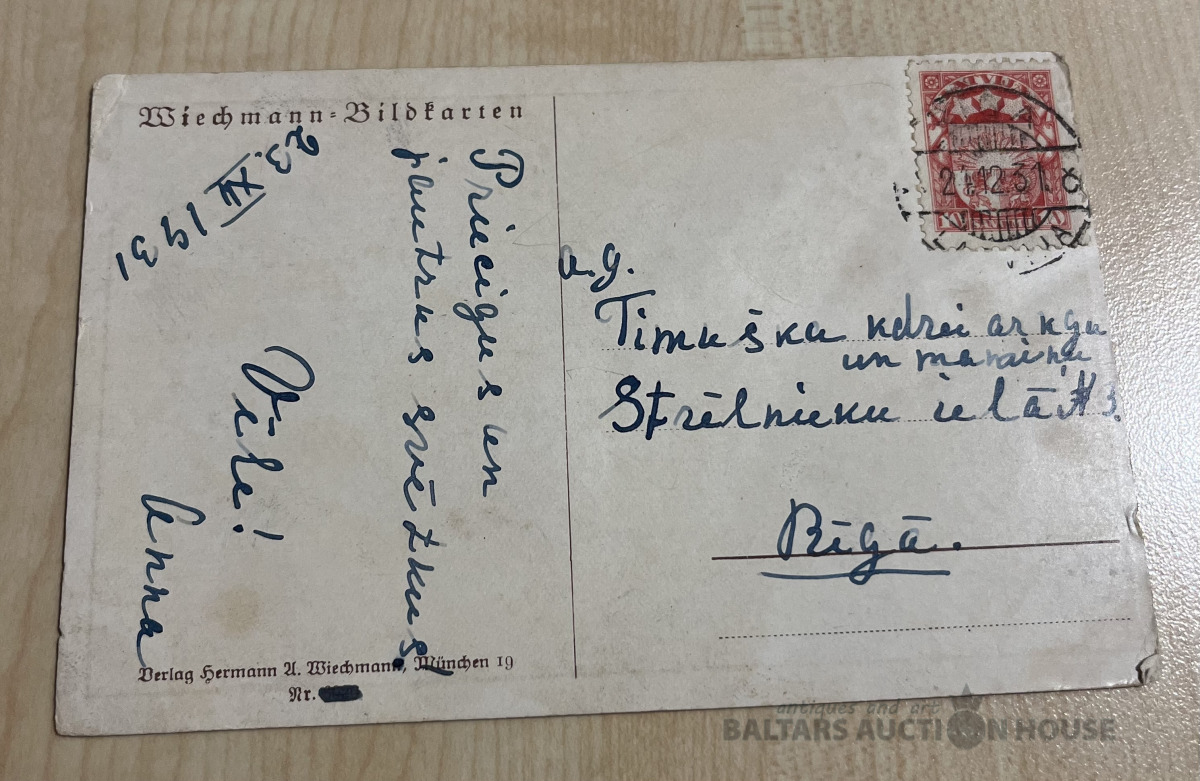 Wiechmann-Bildkarten
23. XII 1931
Priecigus un
jautrus svētkus!
Vēle!
Anna
Verlag Hermann A. Wiechmann, München 19
Nr.
LATVIJA
24.12.31
a.g.
Timuška kdzei ar kgu
un
Strēlnieku ielā № 3.
Rīgā.
antiques and art
BALTARS AUCTION HOUSE